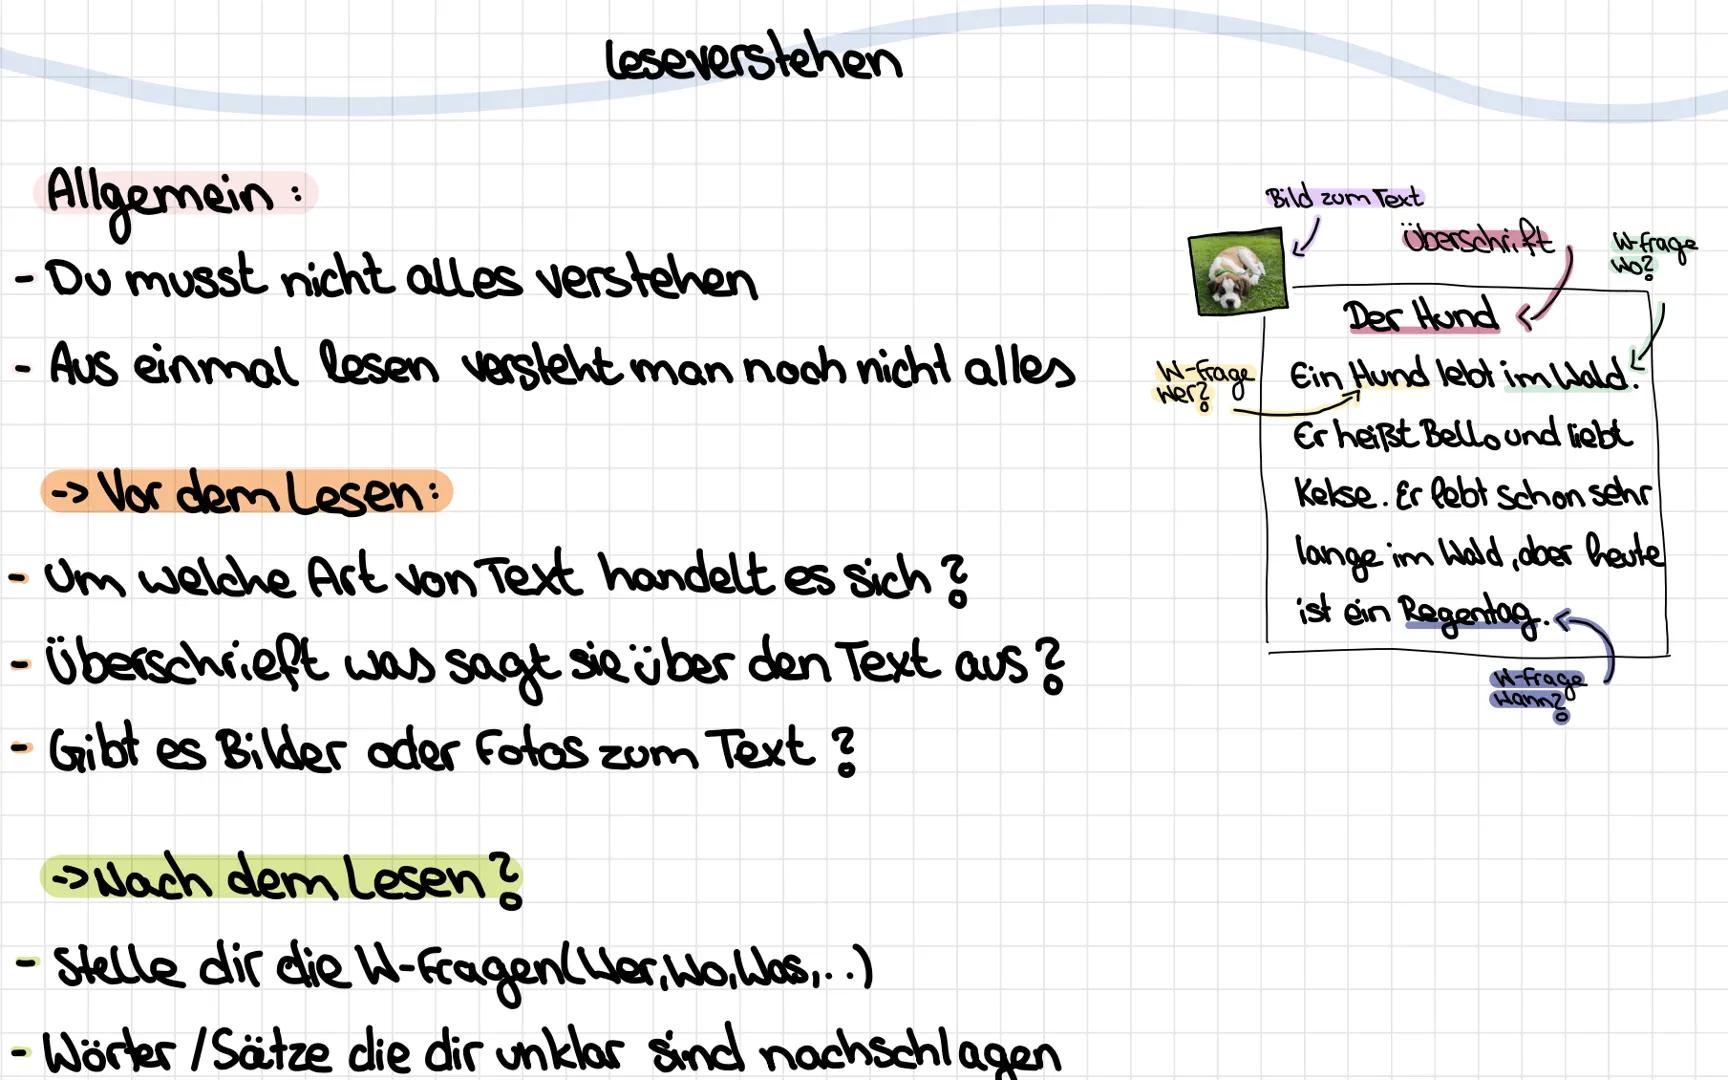 Leseverstehen
Allgemein:
- Du musst nicht alles verstehen
- Aus einmal lesen versteht man noch nicht alles
-> Vor dem Lesen:
- Um welche Art von Text handelt es sich?
- Überschrieft was sagt sie über den Text aus?
- Gibt es Bilder oder Fotos zum Text?
-> Nach dem Lesen?
- Stelle dir die W-Fragen (Wer, Wo, Was,..)
- Wörter / Sätze die dir unklar sind nachschlagen
Bild zum Text
Überschrift
W-Frage
Wo?
Der Hund
W-Frage
Wer?
Ein Hund lebt im Wald.
Er heißt Bello und liebt
Kekse. Er lebt schon sehr
lange im Wald, aber heute
ist ein Regentag.
W-Frage
Wann?